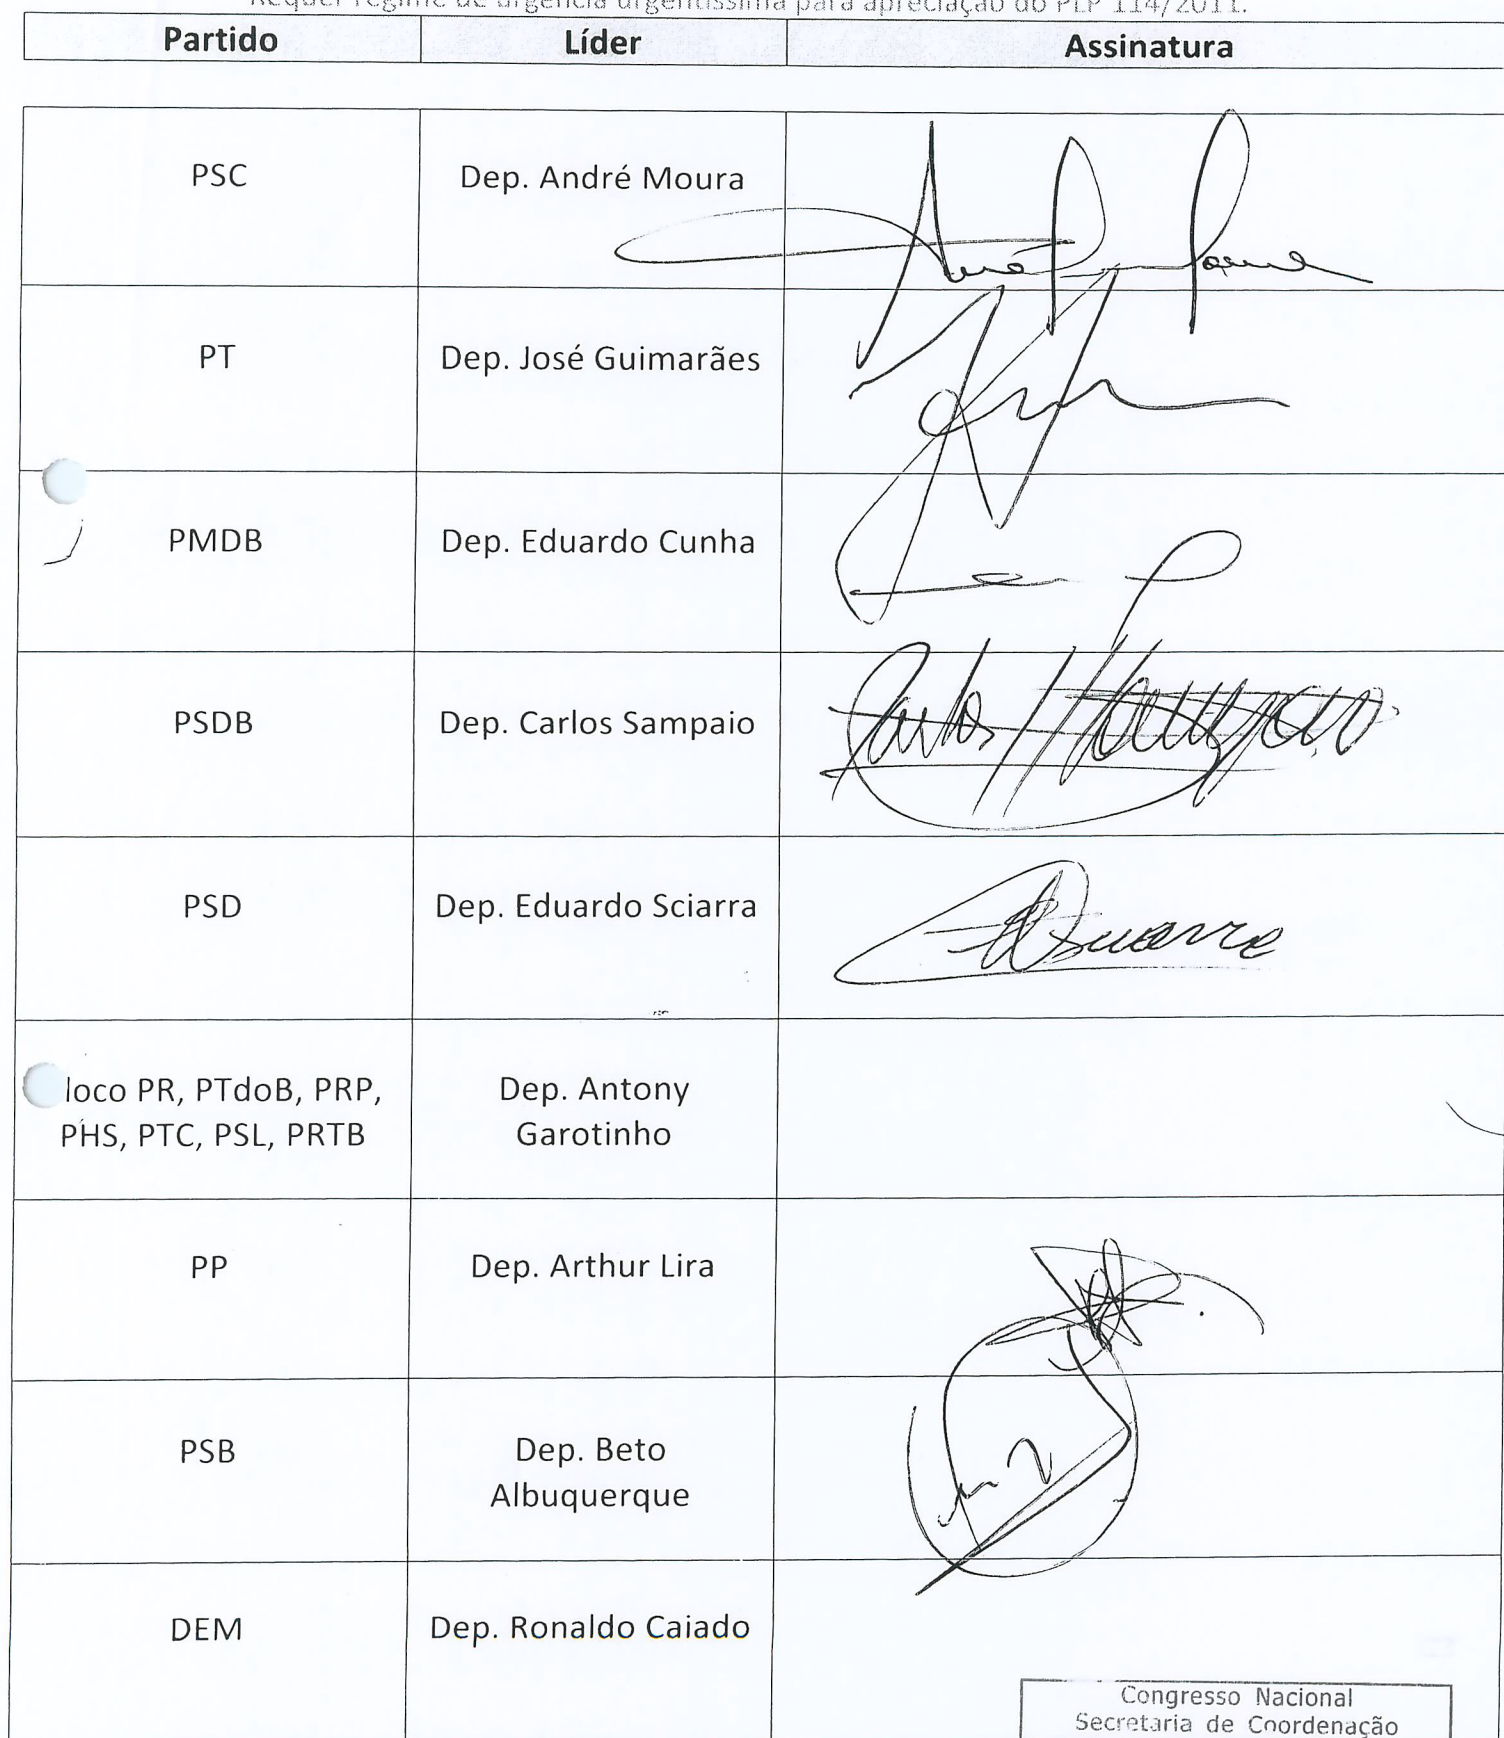 Requer regime de urgência urgentíssima para apreciação do PLP 114/2011.
Partido Líder Assinatura
PSC Dep. André Moura
PT Dep. José Guimarães
PMDB Dep. Eduardo Cunha
PSDB Dep. Carlos Sampaio
Carlos Sampaio
PSD Dep. Eduardo Sciarra
loco PR, PTdoB, PRP,
PHS, PTC, PSL, PRTB
Dep. Antony
Garotinho
PP Dep. Arthur Lira
PSB
Dep. Beto
Albuquerque
DEM Dep. Ronaldo Caiado
Congresso Nacional
Secretaria de Coordenação